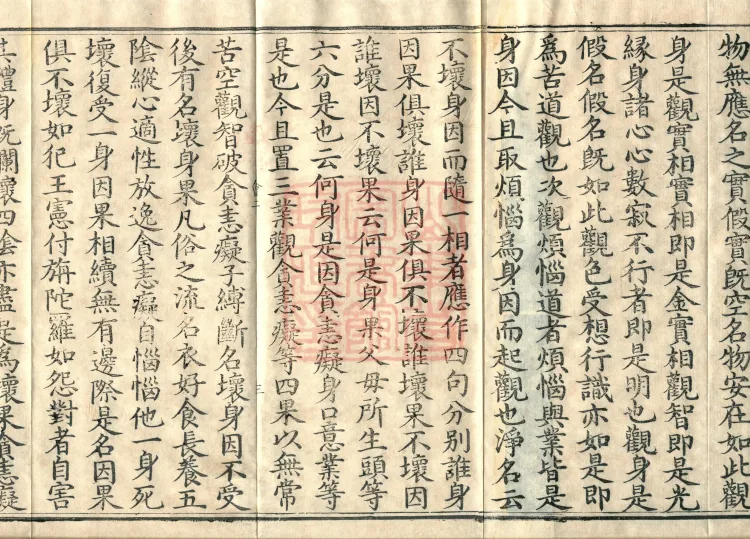 物無應名之實假實旣空名物安在如此觀
身是觀實相實相即是金實相觀智即是光
緣身諸心心數寂不行者即是明也觀身是
假名假名旣如此觀色受想行識亦如是即
爲苦道觀也次觀煩惱道者煩惱與業皆是
身因今且取煩惱爲身因而起觀也淨名云
不壞身因而隨一相者應作四句分別誰身
因果俱壞誰身因果俱不壞誰壞果不壞因
誰壞因不壞果云何是身果父母所生頭等
六分是也云何身是因貪恚癡身口意業等
是也今且置三業觀貪恚癡等四果以無常
苦空觀智破貪恚癡子縛斷名壞身因不受
後有名壞身果凡俗之流名衣好食長養五
陰縱心適性放逸貪恚癡自惱惱他一身死
壞復受一身因果相續無有邊際是名因果
俱不壞如犯王憲付旃陀羅如怨對者自害
其體身旣爛壞四陰亦盡是爲壞果貪恚癡